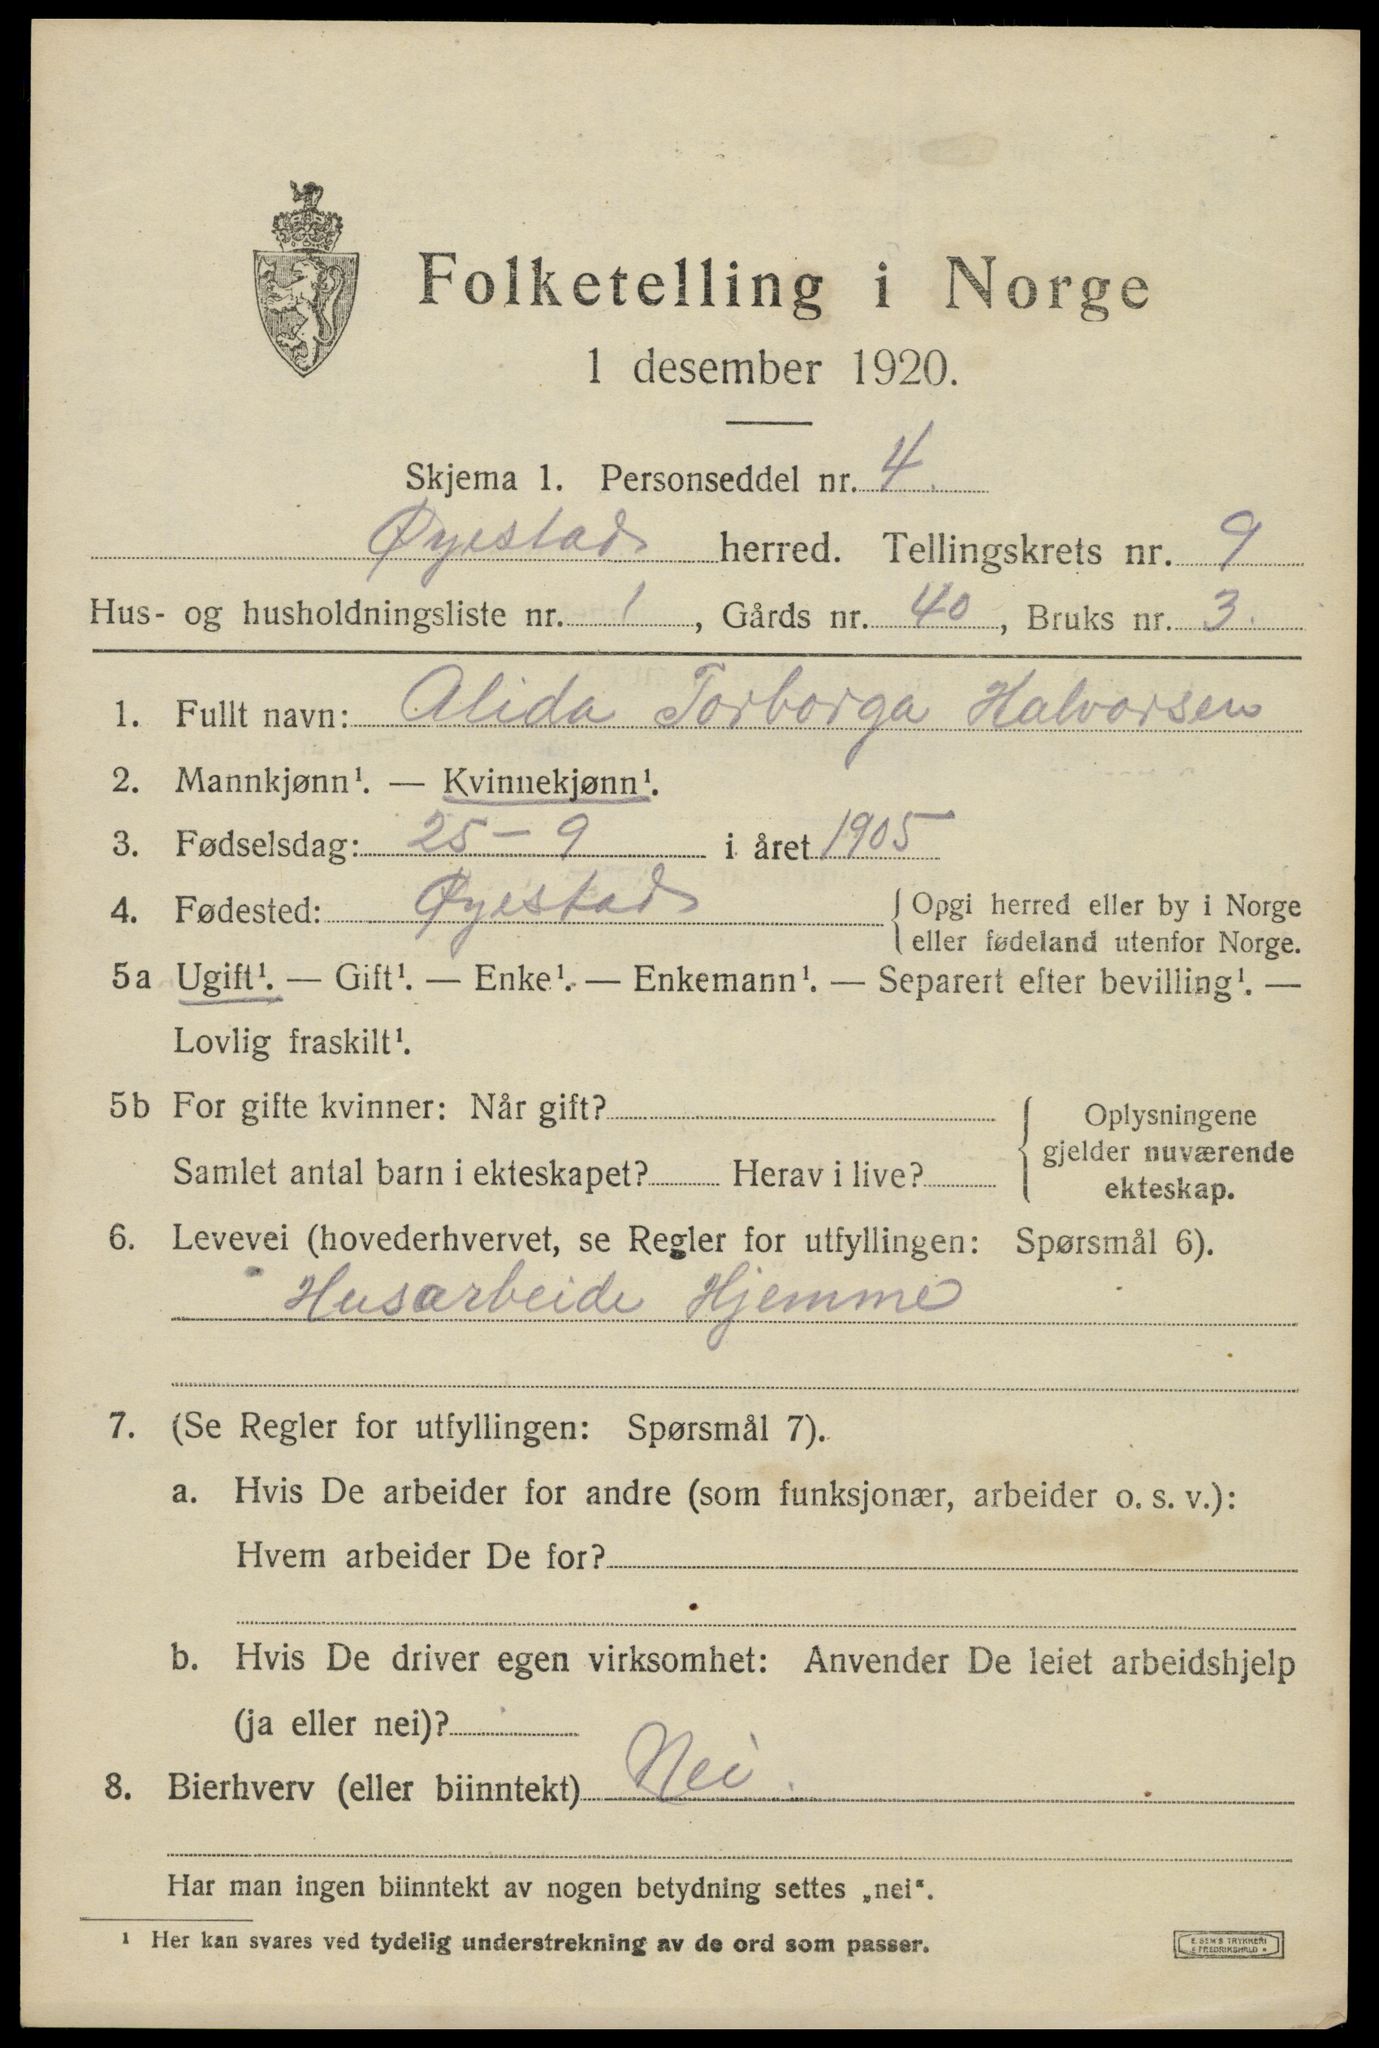 Folketelling i Norge
1 desember 1920.
Skjema 1. Personseddel nr. 4.
Øyestad herred. Tellingskrets nr. 9
Hus- og husholdningsliste nr. 1, Gårds nr. 40, Bruks nr. 3.
1. Fullt navn: Alida Torborga Halvorsen
2. Mannkjønn¹. — Kvinnekjønn¹.
3. Fødselsdag: 25 - 9 i året 1905
4. Fødested: Øyestad { Opgi herred eller by i Norge
eller fødeland utenfor Norge.
5a Ugift¹. — Gift¹. — Enke¹. — Enkemann¹. — Separert efter bevilling¹. —
Lovlig fraskilt¹.
5b For gifte kvinner: Når gift?
Samlet antal barn i ekteskapet? Herav i live?
{ Oplysningene
gjelder nuværende
ekteskap.
6. Levevei (hovederhvervet, se Regler for utfyllingen: Spørsmål 6).
Husarbeide Hjemme
7. (Se Regler for utfyllingen: Spørsmål 7).
a. Hvis De arbeider for andre (som funksjonær, arbeider o. s. v.):
Hvem arbeider De for?
b. Hvis De driver egen virksomhet: Anvender De leiet arbeidshjelp
(ja eller nei)?
8. Bierhverv (eller biinntekt) Nei.
Har man ingen biinntekt av nogen betydning settes „nei“.
¹ Her kan svares ved tydelig understrekning av de ord som passer.
E. SEM'S TRYKKERI
FREDRIKSHALD